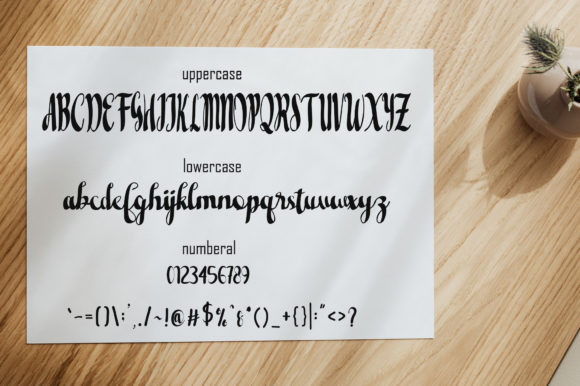 uppercase
ABCDEFGHIJKLMNOPQRSTUVWXYZ
lowercase
abcdefghijklmnopqrstuvwxyz
numberal
0123456789
`-=()\:',./~!@#$%^&*()_+{}|:"<>?